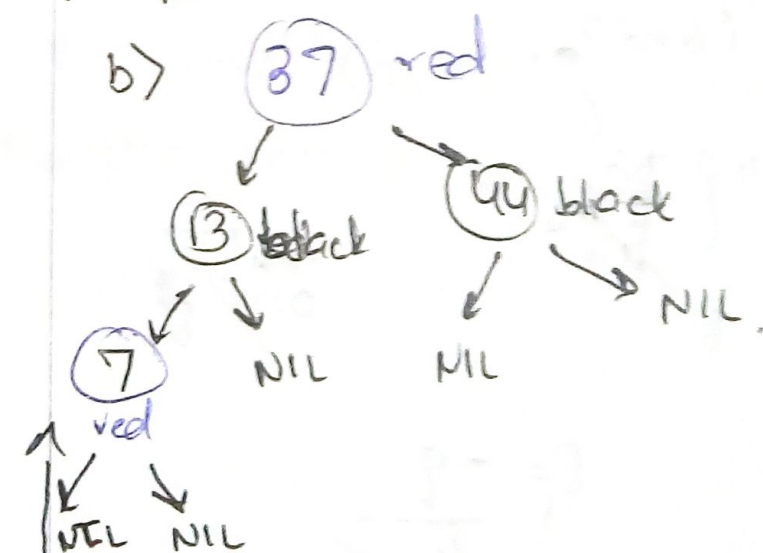 b> 37 red
13 black 44 black
NIL
7 NIL NIL
red
NIL NIL